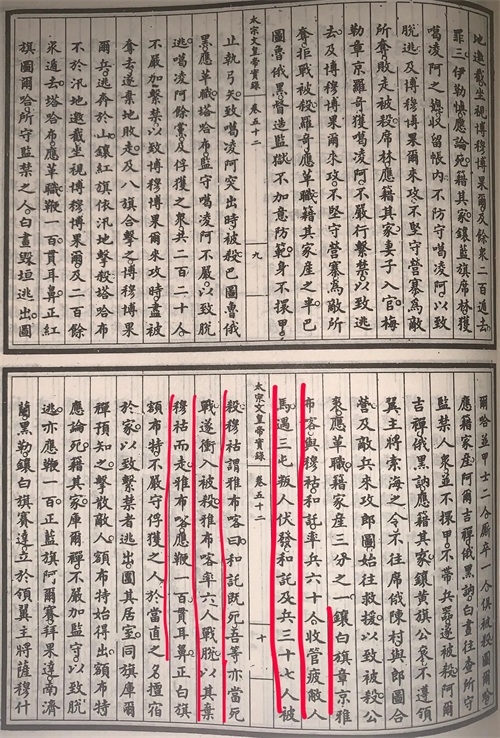 地邀截坐視博穆博果爾及餘衆二百遁去
罪三伊勒慎應論死籍其家鑲藍旗席林獲
噶凌阿之甥收留帳內不防守噶凌阿以致
脫逃及博穆博果爾來攻不堅守營寨為敵
所奪敗走被殺席林應籍其家妻子入官梅
勒章京羅奇獲噶凌阿不嚴行繫禁以致逃
去及博穆博果爾來攻不堅守營寨為敵所
奪拒戰被殺羅奇應革職籍其家產之半巴
圖魯俄黑督造監獄不加意防範身不擐甲
太宗文皇帝實錄 卷五十二 九
止執弓矢致噶凌阿突出時被殺巴圖魯俄
黑應革職塔哈布監守噶凌阿不嚴以致脫
逃噶凌阿餘黨及俘獲之衆共二百二十人
不嚴加繫禁以致博穆博果爾來攻時盡被
奪去遂棄地敗走及八旗合擊之博穆博果
爾兵逃奔於山鑲紅旗依汛地擊殺塔哈布
不於汛地邀截坐視博穆博果爾及二百餘
衆遁去塔哈布應革職鞭一百貫耳鼻正紅
旗圖爾哈所守監禁之人白晝毀垣逃出圖
爾哈並甲士二人廝卒 人俱被殺圖爾哈
應籍家產阿爾吉禪俄黑訥白晝往查所守
監禁人衆並不擐甲不帶兵器遂被殺阿爾
吉禪俄黑訥應籍其家鑲黃旗公袞不遵領
翼主將索海之令不往席俄陳村與郎圖合
營及敵兵來攻郎圖始往救援以致被殺公
袞應革職籍家產三分之一鑲白旗章京雅
布喀與穆祜和託率兵六十人收管疲敵人
馬遇三屯叛人伏發和託及兵三十七人被
太宗文皇帝實錄 卷五十二 十
殺穆祜謂雅布喀曰和託既死吾等亦當死
戰遂衝入被殺雅布喀率六人戰脫以其棄
穆祜而走雅布喀應鞭一百貫耳鼻正白旗
額布特不嚴守俘獲之人於當直之名擅宿
於家以致繫禁者逃出圖其居室同旗庫爾
禪預知之擊散敵人額布特始得出額布特
應論死籍其家庫爾禪不嚴加監守以致脫
逃亦應鞭一百正藍旗阿爾賽拜果達南濟
蘭黑勒鑲白旗賽達立於領翼主將薩穆什